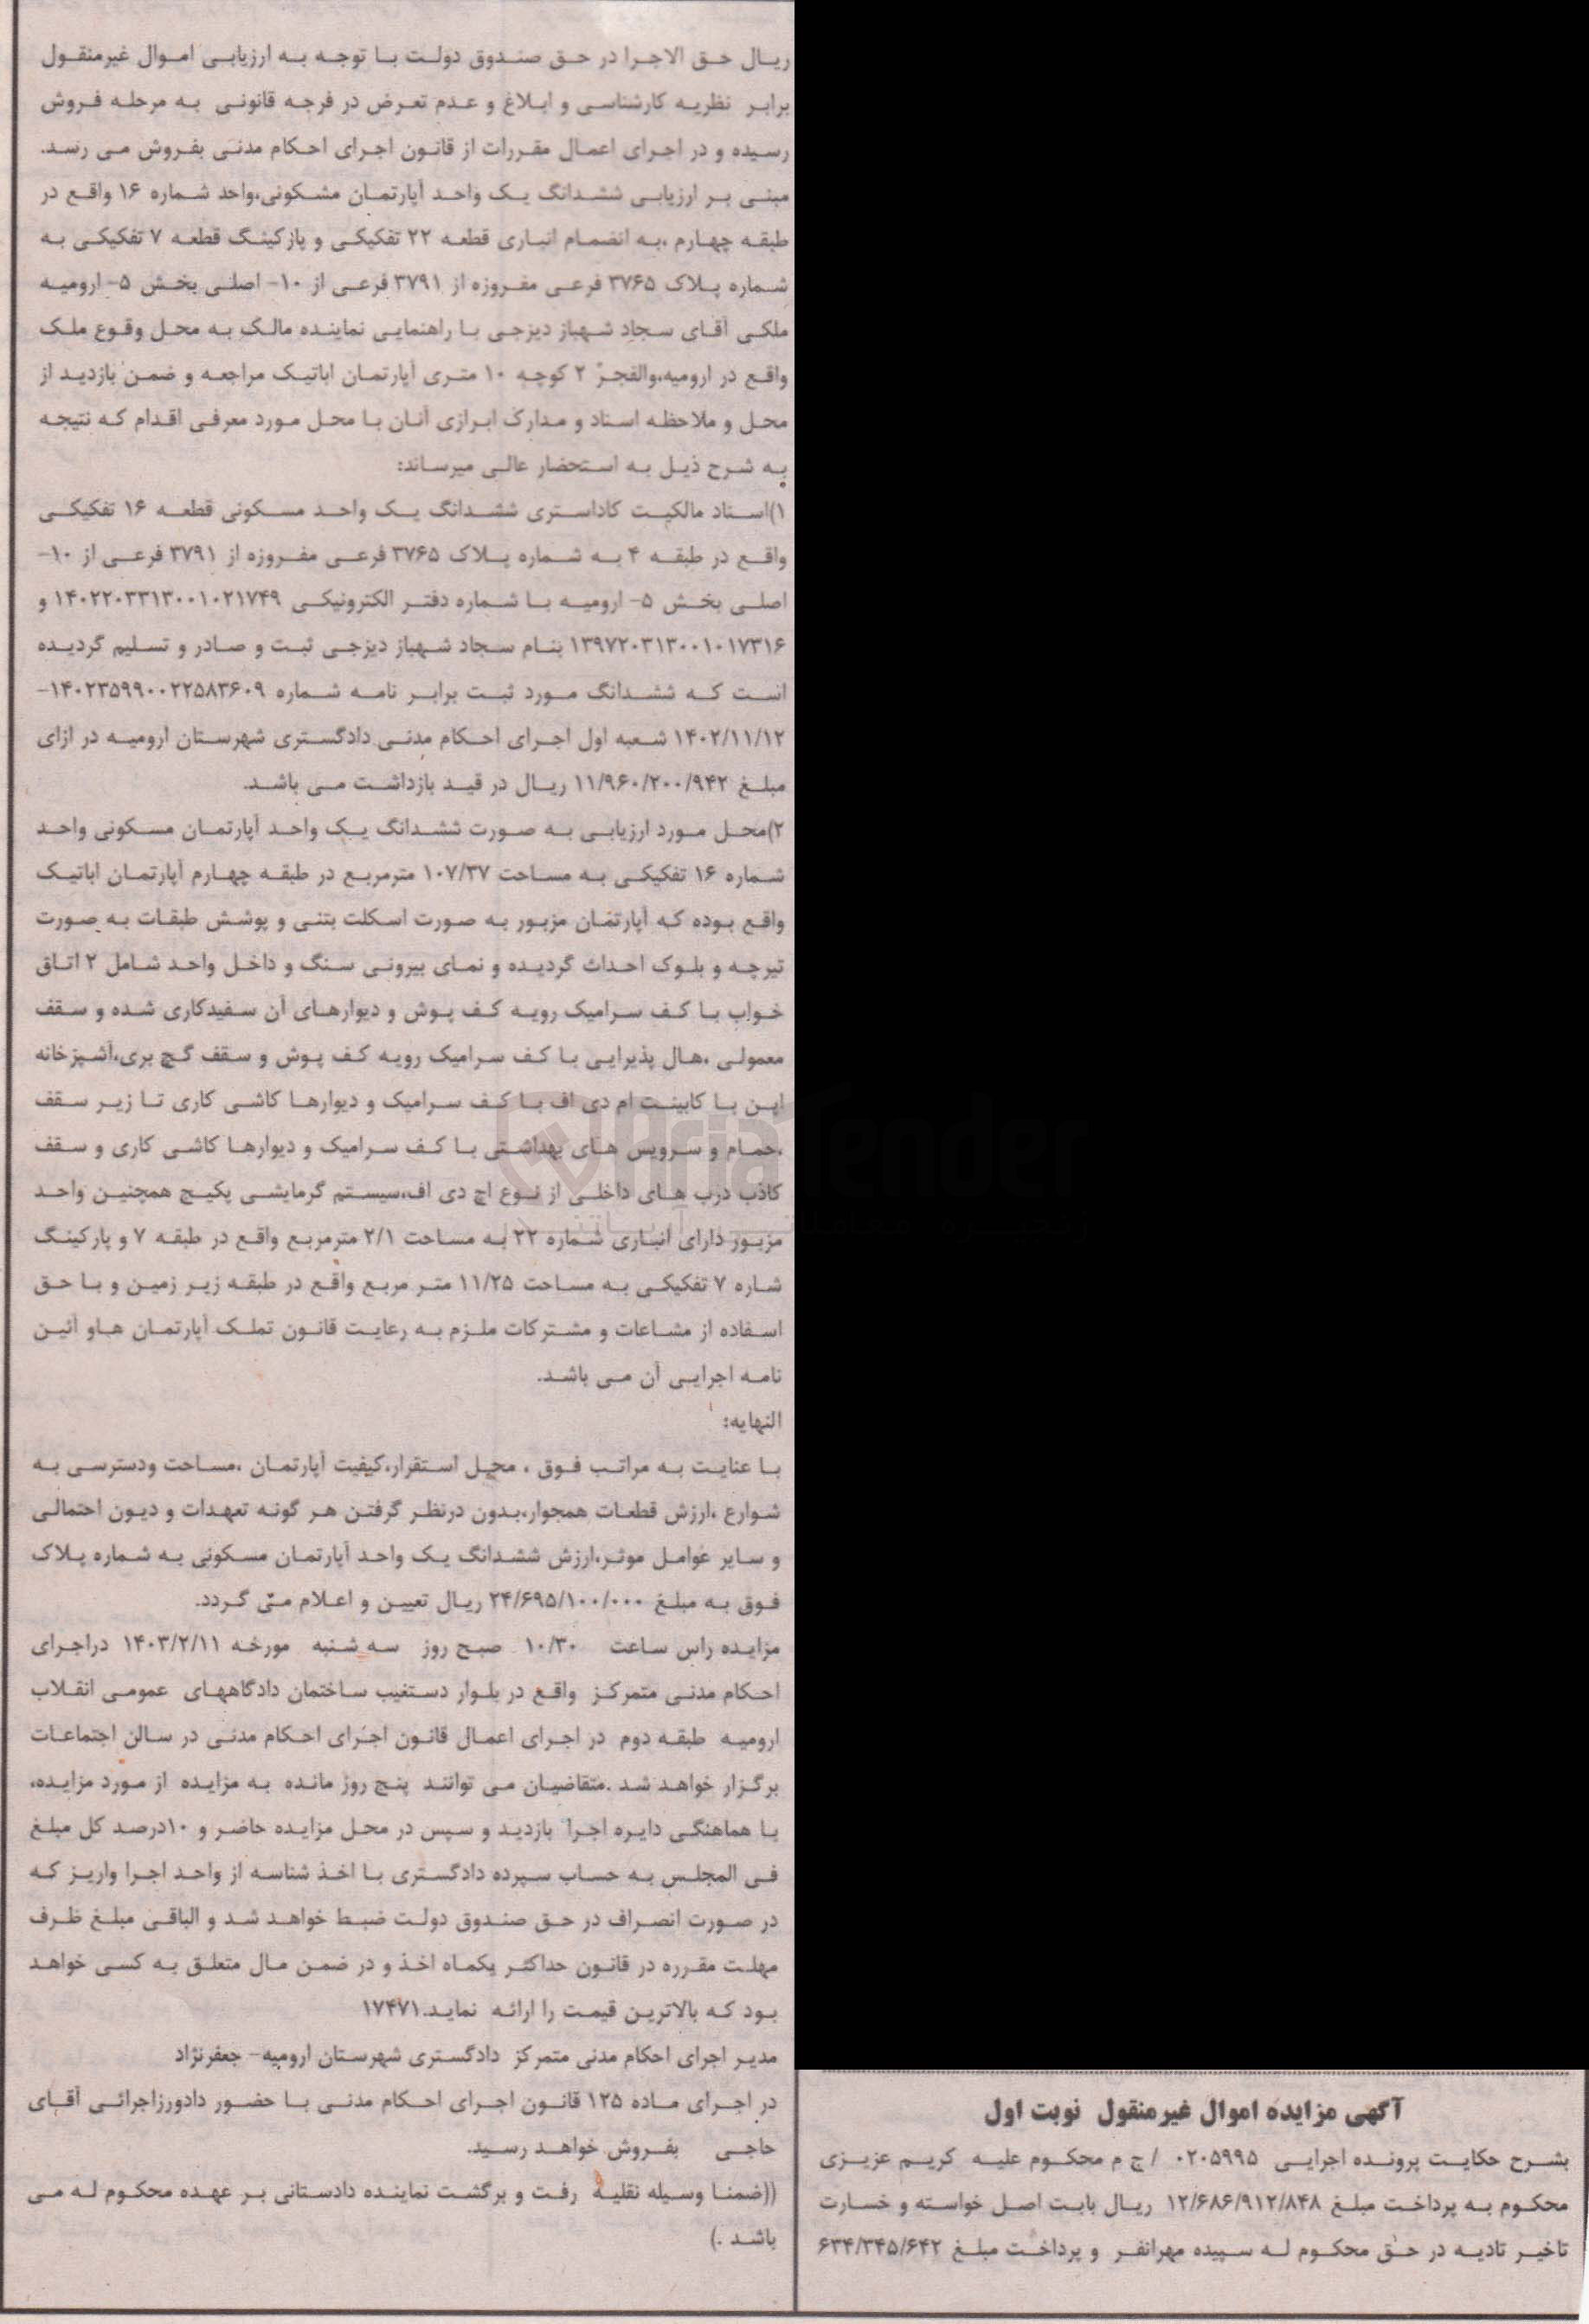 آگهی مزایده اموال غیرمنقول نوبت اول
بشرح حکایت پرونده اجرایی ۰۲۰۵۹۹۵ / ج م محکوم علیه کریم عزیزی
محکوم به پرداخت مبلغ ۱۲/۶۸۶/۹۱۲/۸۴۸ ریال بابت اصل خواسته و خسارت
تاخیر تادیه در حق محکوم له سپیده مهرانفر و پرداخت مبلغ ۶۳۴/۳۴۵/۶۴۲
ریال حق الاجرا در حق صندوق دولت با توجه به ارزیابی اموال غیرمنقول
برابر نظریه کارشناسی و ابلاغ و عدم تعرض در فرجه قانونی به مرحله فروش
رسیده و در اجرای اعمال مقررات از قانون اجرای احکام مدنی بفروش می رسد.
مبنی بر ارزیابی ششدانگ یک واحد آپارتمان مشکونی،واحد شماره ۱۶ واقع در
طبقه چهارم ،به انضمام انباری قطعه ۲۲ تفکیکی و پارکینگ قطعه ۷ تفکیکی به
شماره پلاک ۳۷۶۵ فرعی مفروزه از ۳۷۹۱ فرعی از ۱۰- اصلی بخش ۵- ارومیه
ملکی آقای سجاد شهباز دیزجی با راهنمایی نماینده مالک به محل وقوع ملک
واقع در ارومیه،والفجر ۲ کوچه ۱۰ متری آپارتمان اباتیک مراجعه و ضمن بازدید از
محل و ملاحظه اسناد و مدارک ابرازی آنان با محل مورد معرفی اقدام که نتیجه
به شرح ذیل به استحضار عالی میرساند:
۱)اسناد مالکیت کاداستری ششدانگ یک واحد مسکونی قطعه ۱۶ تفکیکی
واقع در طبقه ۴ به شماره پلاک ۳۷۶۵ فرعی مفروزه از ۳۷۹۱ فرعی از ۱۰-
اصلی بخش ۵- ارومیه با شماره دفتر الکترونیکی ۱۴۰۲۲۰۳۳۱۳۰۰۱۰۲۱۷۴۹ و
۱۳۹۷۲۰۳۱۳۰۰۱۰۱۷۳۱۶ بنام سجاد شهباز دیزجی ثبت و صادر و تسلیم گردیده
است که ششدانگ مورد ثبت برابر نامه شماره ۱۴۰۲۳۵۹۹۰۰۲۲۵۸۳۶۰۹-
۱۴۰۲/۱۱/۱۲ شعبه اول اجرای احکام مدنی دادگستری شهرستان ارومیه در ازای
مبلغ ۱۱/۹۶۰/۲۰۰/۹۴۲ ریال در قید بازداشت می باشد.
۲)محل مورد ارزیابی به صورت ششدانگ یک واحد آپارتمان مسکونی واحد
شماره ۱۶ تفکیکی به مساحت ۱۰۷/۳۷ مترمربع در طبقه چهارم آپارتمان اباتیک
واقع بوده که آپارتمان مزبور به صورت اسکلت بتنی و پوشش طبقات به صورت
تیرچه و بلوک احداث گردیده و نمای بیرونی سنگ و داخل واحد شامل ۲ اتاق
خواب با کف سرامیک رویه کف پوش و دیوارهای آن سفیدکاری شده و سقف
معمولی ،هال پذیرایی با کف سرامیک رویه کف پوش و سقف گچ بری،آشپزخانه
اپن با کابینت ام دی اف با کف سرامیک و دیوارها کاشی کاری تا زیر سقف
،حمام و سرویس های بهداشتی با کف سرامیک و دیوارها کاشی کاری و سقف
کاذب درب های داخلی از نوع اچ دی اف،سیستم گرمایشی پکیج همچنین واحد
مزبور دارای انباری شماره ۲۲ به مساحت ۲/۱ مترمربع واقع در طبقه ۷ و پارکینگ
شاره ۷ تفکیکی به مساحت ۱۱/۲۵ متر مربع واقع در طبقه زیر زمین و با حق
اسفاده از مشاعات و مشترکات ملزم به رعایت قانون تملک آپارتمان هاو آئین
نامه اجرایی آن می باشد.
النهایه:
با عنایت به مراتب فوق ، محل استقرار،کیفیت آپارتمان ،مساحت ودسترسی به
شوارع ،ارزش قطعات همجوار،بدون درنظر گرفتن هر گونه تعهدات و دیون احتمالی
و سایر عوامل موثر،ارزش ششدانگ یک واحد آپارتمان مسکونی به شماره پلاک
فوق به مبلغ ۲۴/۶۹۵/۱۰۰/۰۰۰ ریال تعیین و اعلام می گردد.
مزایده راس ساعت ۱۰/۳۰ صبح روز سه شنبه مورخه ۱۴۰۳/۲/۱۱ دراجرای
احکام مدنی متمرکز واقع در بلوار دستغیب ساختمان دادگاههای عمومی انقلاب
ارومیه طبقه دوم در اجرای اعمال قانون اجرای احکام مدنی در سالن اجتماعات
برگزار خواهد شد .متقاضیان می توانند پنج روز مانده به مزایده از مورد مزایده،
با هماهنگی دایره اجرا بازدید و سپس در محل مزایده حاضر و ۱۰درصد کل مبلغ
فی المجلس به حساب سپرده دادگستری با اخذ شناسه از واحد اجرا واریز که
در صورت انصراف در حق صندوق دولت ضبط خواهد شد و الباقی مبلغ ظرف
مهلت مقرره در قانون حداکثر یکماه اخذ و در ضمن مال متعلق به کسی خواهد
بود که بالاترین قیمت را ارائه نماید.۱۷۴۷۱
مدیر اجرای احکام مدنی متمرکز دادگستری شهرستان ارومیه- جعفرنژاد
در اجرای ماده ۱۲۵ قانون اجرای احکام مدنی با حضور دادورزاجرائی آقای
حاجی بفروش خواهد رسید.
((ضمنا وسیله نقلیه رفت و برگشت نماینده دادستانی بر عهده محکوم له می
باشد .)
AriaTender